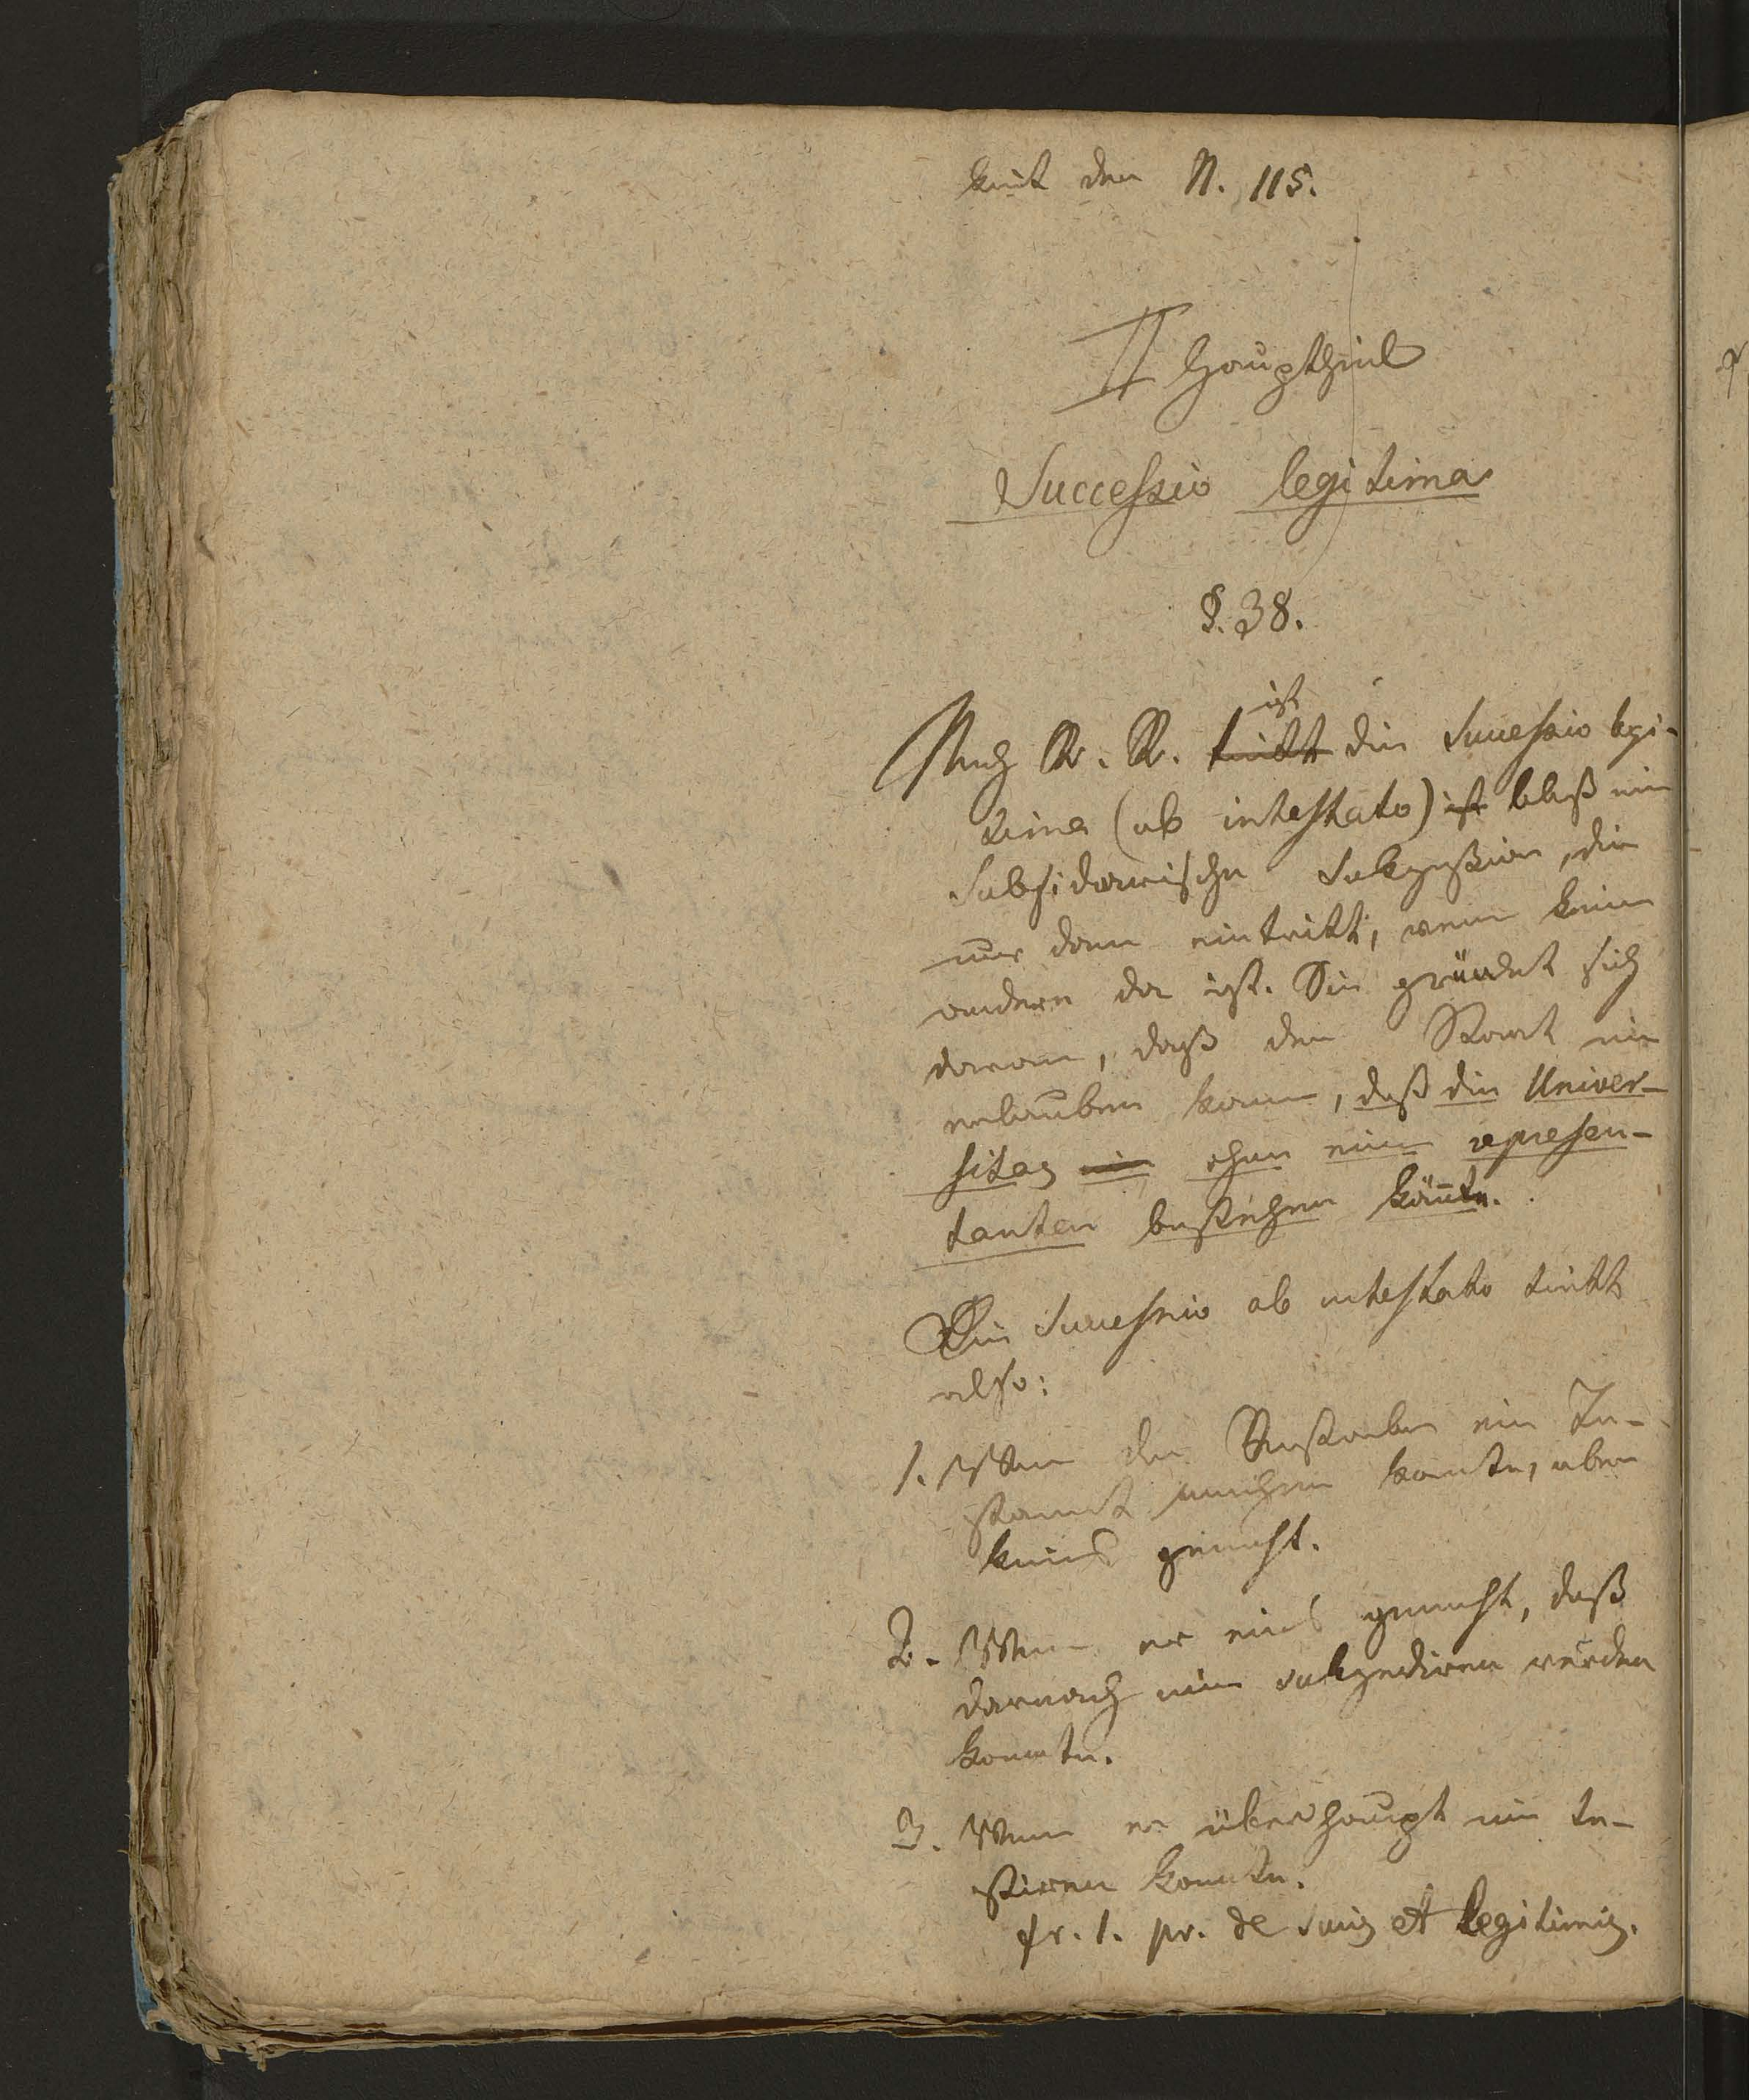 keit der N. 115.
II Haupttheil
Successio legitima
§. 38.
Nach R. R. tritt ist die Successio legi-
tima (ab intestato) ist bloß eine
subsidarische Sukzession, die
nur dann eintritt, wenn keine
andere da ist. Sie gründet sich
daran, daß der Staat nie
erlauben kann, daß die Univer-
sitas nie ohne einen represen-
tanten bestehen könnte.
Die Successio ab intestato tritt
also:
1. Wenn der Verstorbene ein Te-
stament machen konnte, aber
keines gemacht.
2. Wenn er eines gemacht, daß
darnach nie sukzediren werden
konnte.
3. Wenn er überhaupt nie te-
stiren konnte.
fr. 1. pr. de suis et legitimis.